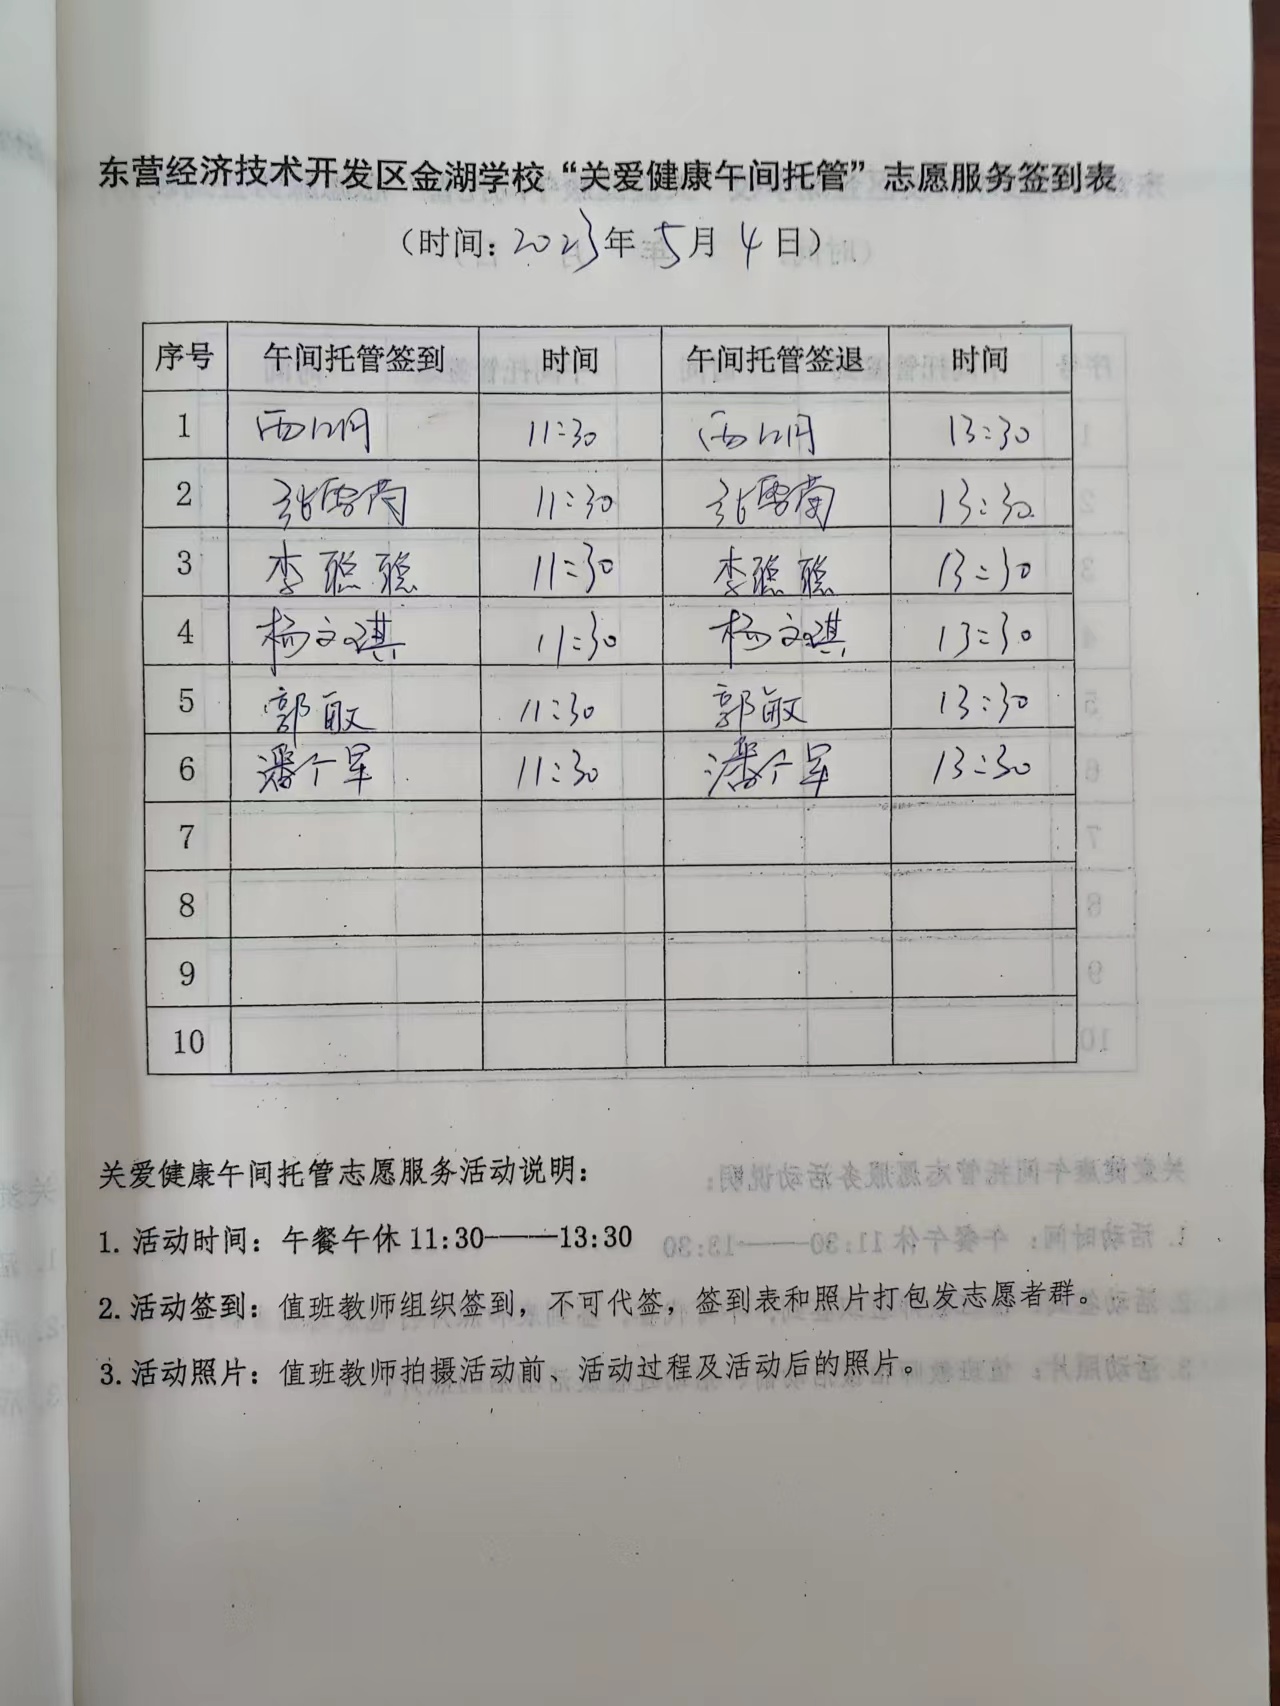 东营经济技术开发区金湖学校“关爱健康午间托管”志愿服务签到表
（时间：2023年5月4日）
序号 午间托管签到 时间 午间托管签退 时间
1 11:30 13:30
2 11:30 13:30
3 李聪聪 11:30 李聪聪 13:30
4 杨文琪 11:30 杨文琪 13:30
5 郭敏 11:30 郭敏 13:30
6 潘个军 11:30 潘个军 13:30
7
8
9
10
关爱健康午间托管志愿服务活动说明：
1. 活动时间：午餐午休 11:30——13:30
2. 活动签到：值班教师组织签到，不可代签，签到表和照片打包发志愿者群。
3. 活动照片：值班教师拍摄活动前、活动过程及活动后的照片。